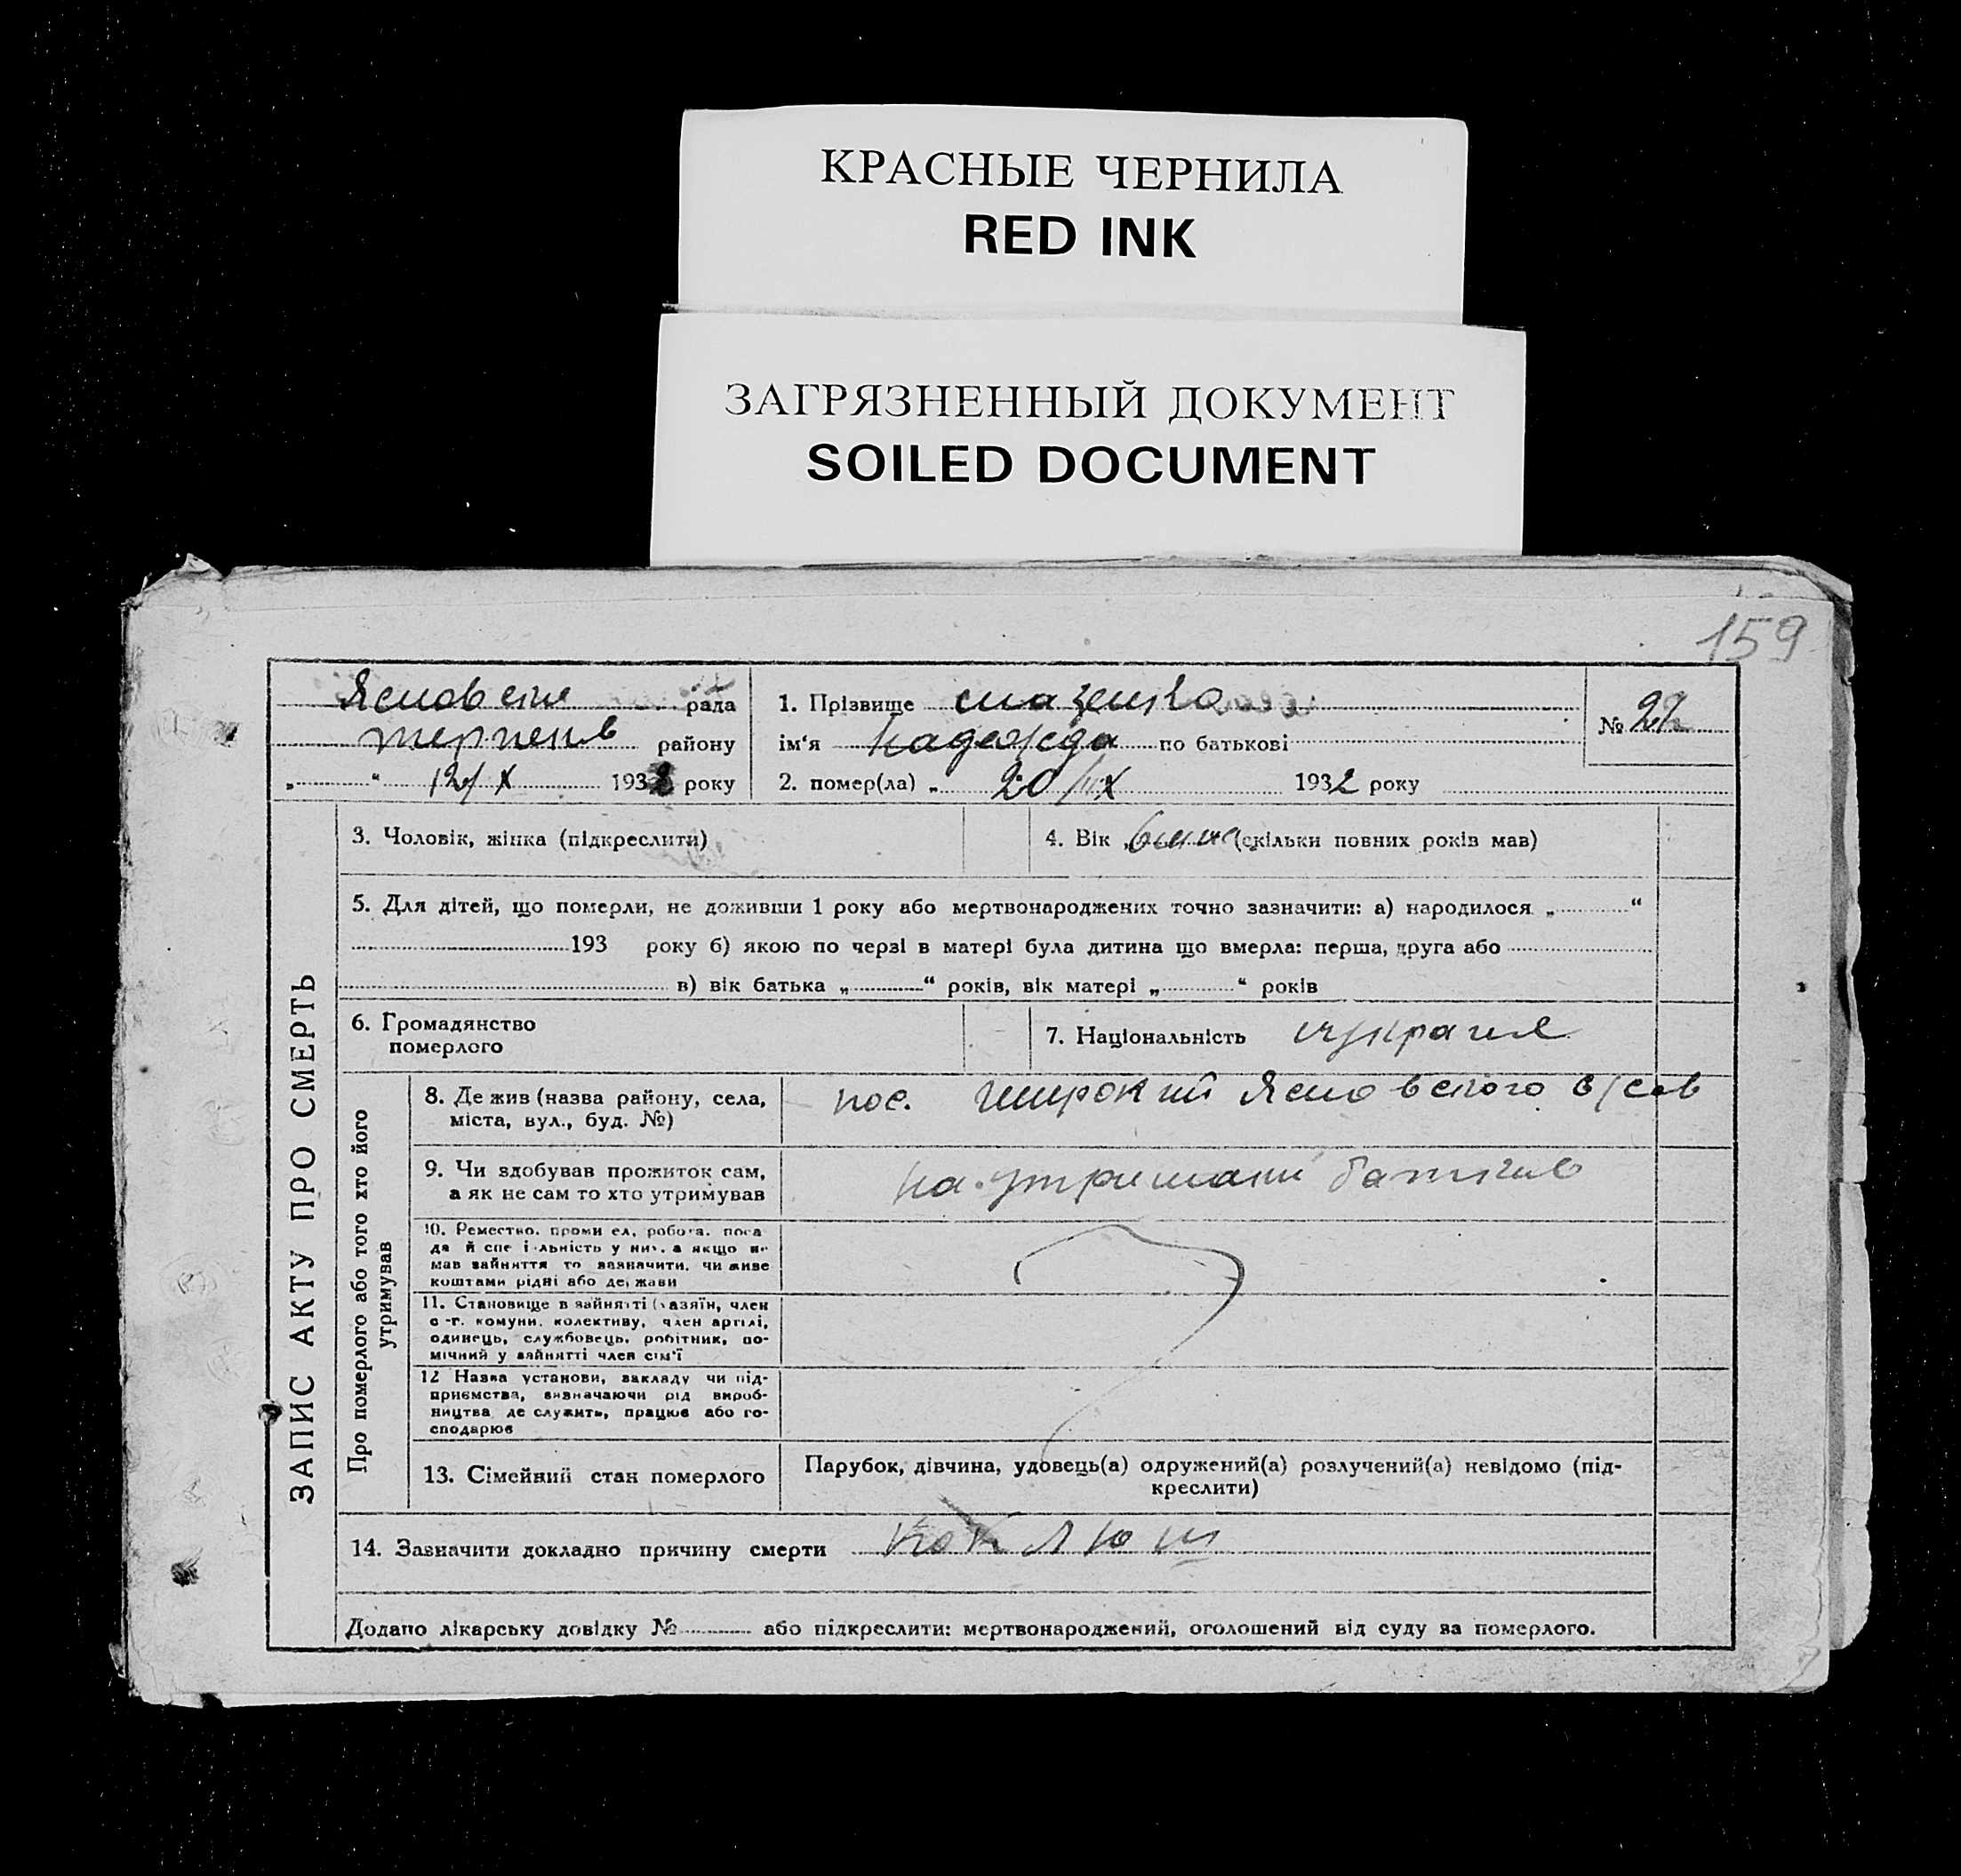 КРАСНЫЕ ЧЕРНИЛА
RED INK
ЗАГРЯЗНЕННЫЙ ДОКУМЕНТ
SOILED DOCUMENT
159
рада
району
„ “ 12/X 1932 року
1. Прізвище
ім‘я Надежда по батькові
2. помер(ла) „ 20/ 1932 року
№
ЗАПИС АКТУ ПРО СМЕРТЬ
3. Чоловік, жінка (підкреслити)
4. Вік (скільки повних років мав)
5. Для дітей, що померли, не доживши 1 року або мертвонароджених точно зазначити: а) народилося „ “
193 року б) якою по черзі в матері була дитина що вмерла: перша, друга або
в) вік батька „ “ років, вік матері „ “ років
6. Громадянство
померлого
7. Національність
Про померлого або того хто його
утримував
8. Де жив (назва району, села,
міста, вул., буд. №)
пос. Широкий Ясиновского с/сов
9. Чи здобував прожиток сам,
а як не сам то хто утримував
на утримані батьків
10. Ремество, проми ел, робота, поса
да й спе і льність у ни, а якщо не
мав зайняття то зазначити, чи живе
коштами рідні або держави
11. Становище в зайнятті (хазяїн, член
с.-г. комуни, колективу, член артілі,
одинець, службовець, робітник, по-
мічний у зайнятті член сім‘ї
12 Назва установи, закладу чи під-
приємства, визначаючи рід вироб-
ництва де служить, працює або го-
сподарює
13. Сімейний стан померлого
Парубок, дівчина, удовець(а) одружений(а) розлучений(а) невідомо (під-
креслити)
14. Зазначити докладно причину смерти коклюш
Додано лікарську довідку № або підкреслити: мертвонароджений, оголошений від суду за померлого.